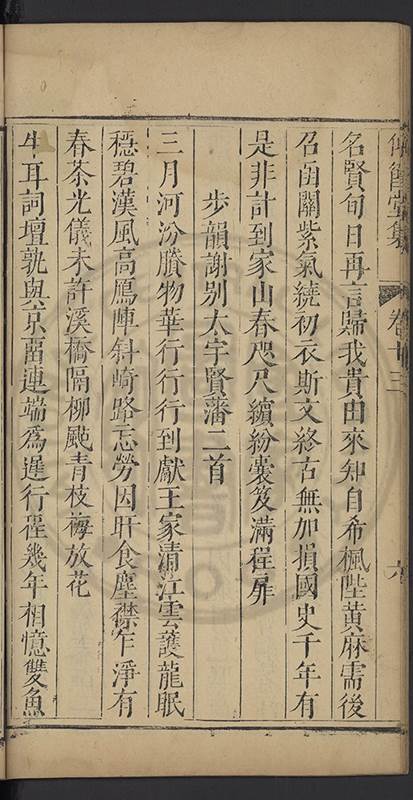 卷廿三
六
名賢旬日再言歸我貴由來知自希楓陛黃麻需後
召函關紫氣繞初衣斯文終古無加損國史千年有
是非計到家山春咫尺繽紛囊笈滿程扉
步韻謝别太宇賢藩二首
三月河汾賸物華行行行到獻王家清江雲護龍眠
穩碧漢風高鴈陣斜崎路忘勞因旰食塵襟乍淨有
春茶光儀未許溪橋隔柳颭青枝梅放花
牛耳詞壇孰與京畱連端為遲行程幾年相憶雙魚